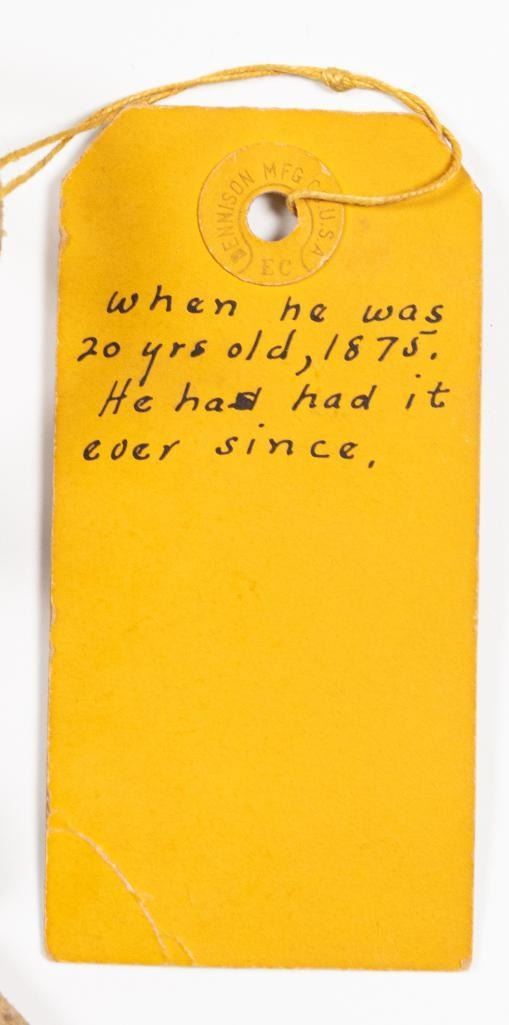 DENNISON MFG CO U.S.A
EC
when he was
20 yrs old, 1875.
He had had it
ever since.